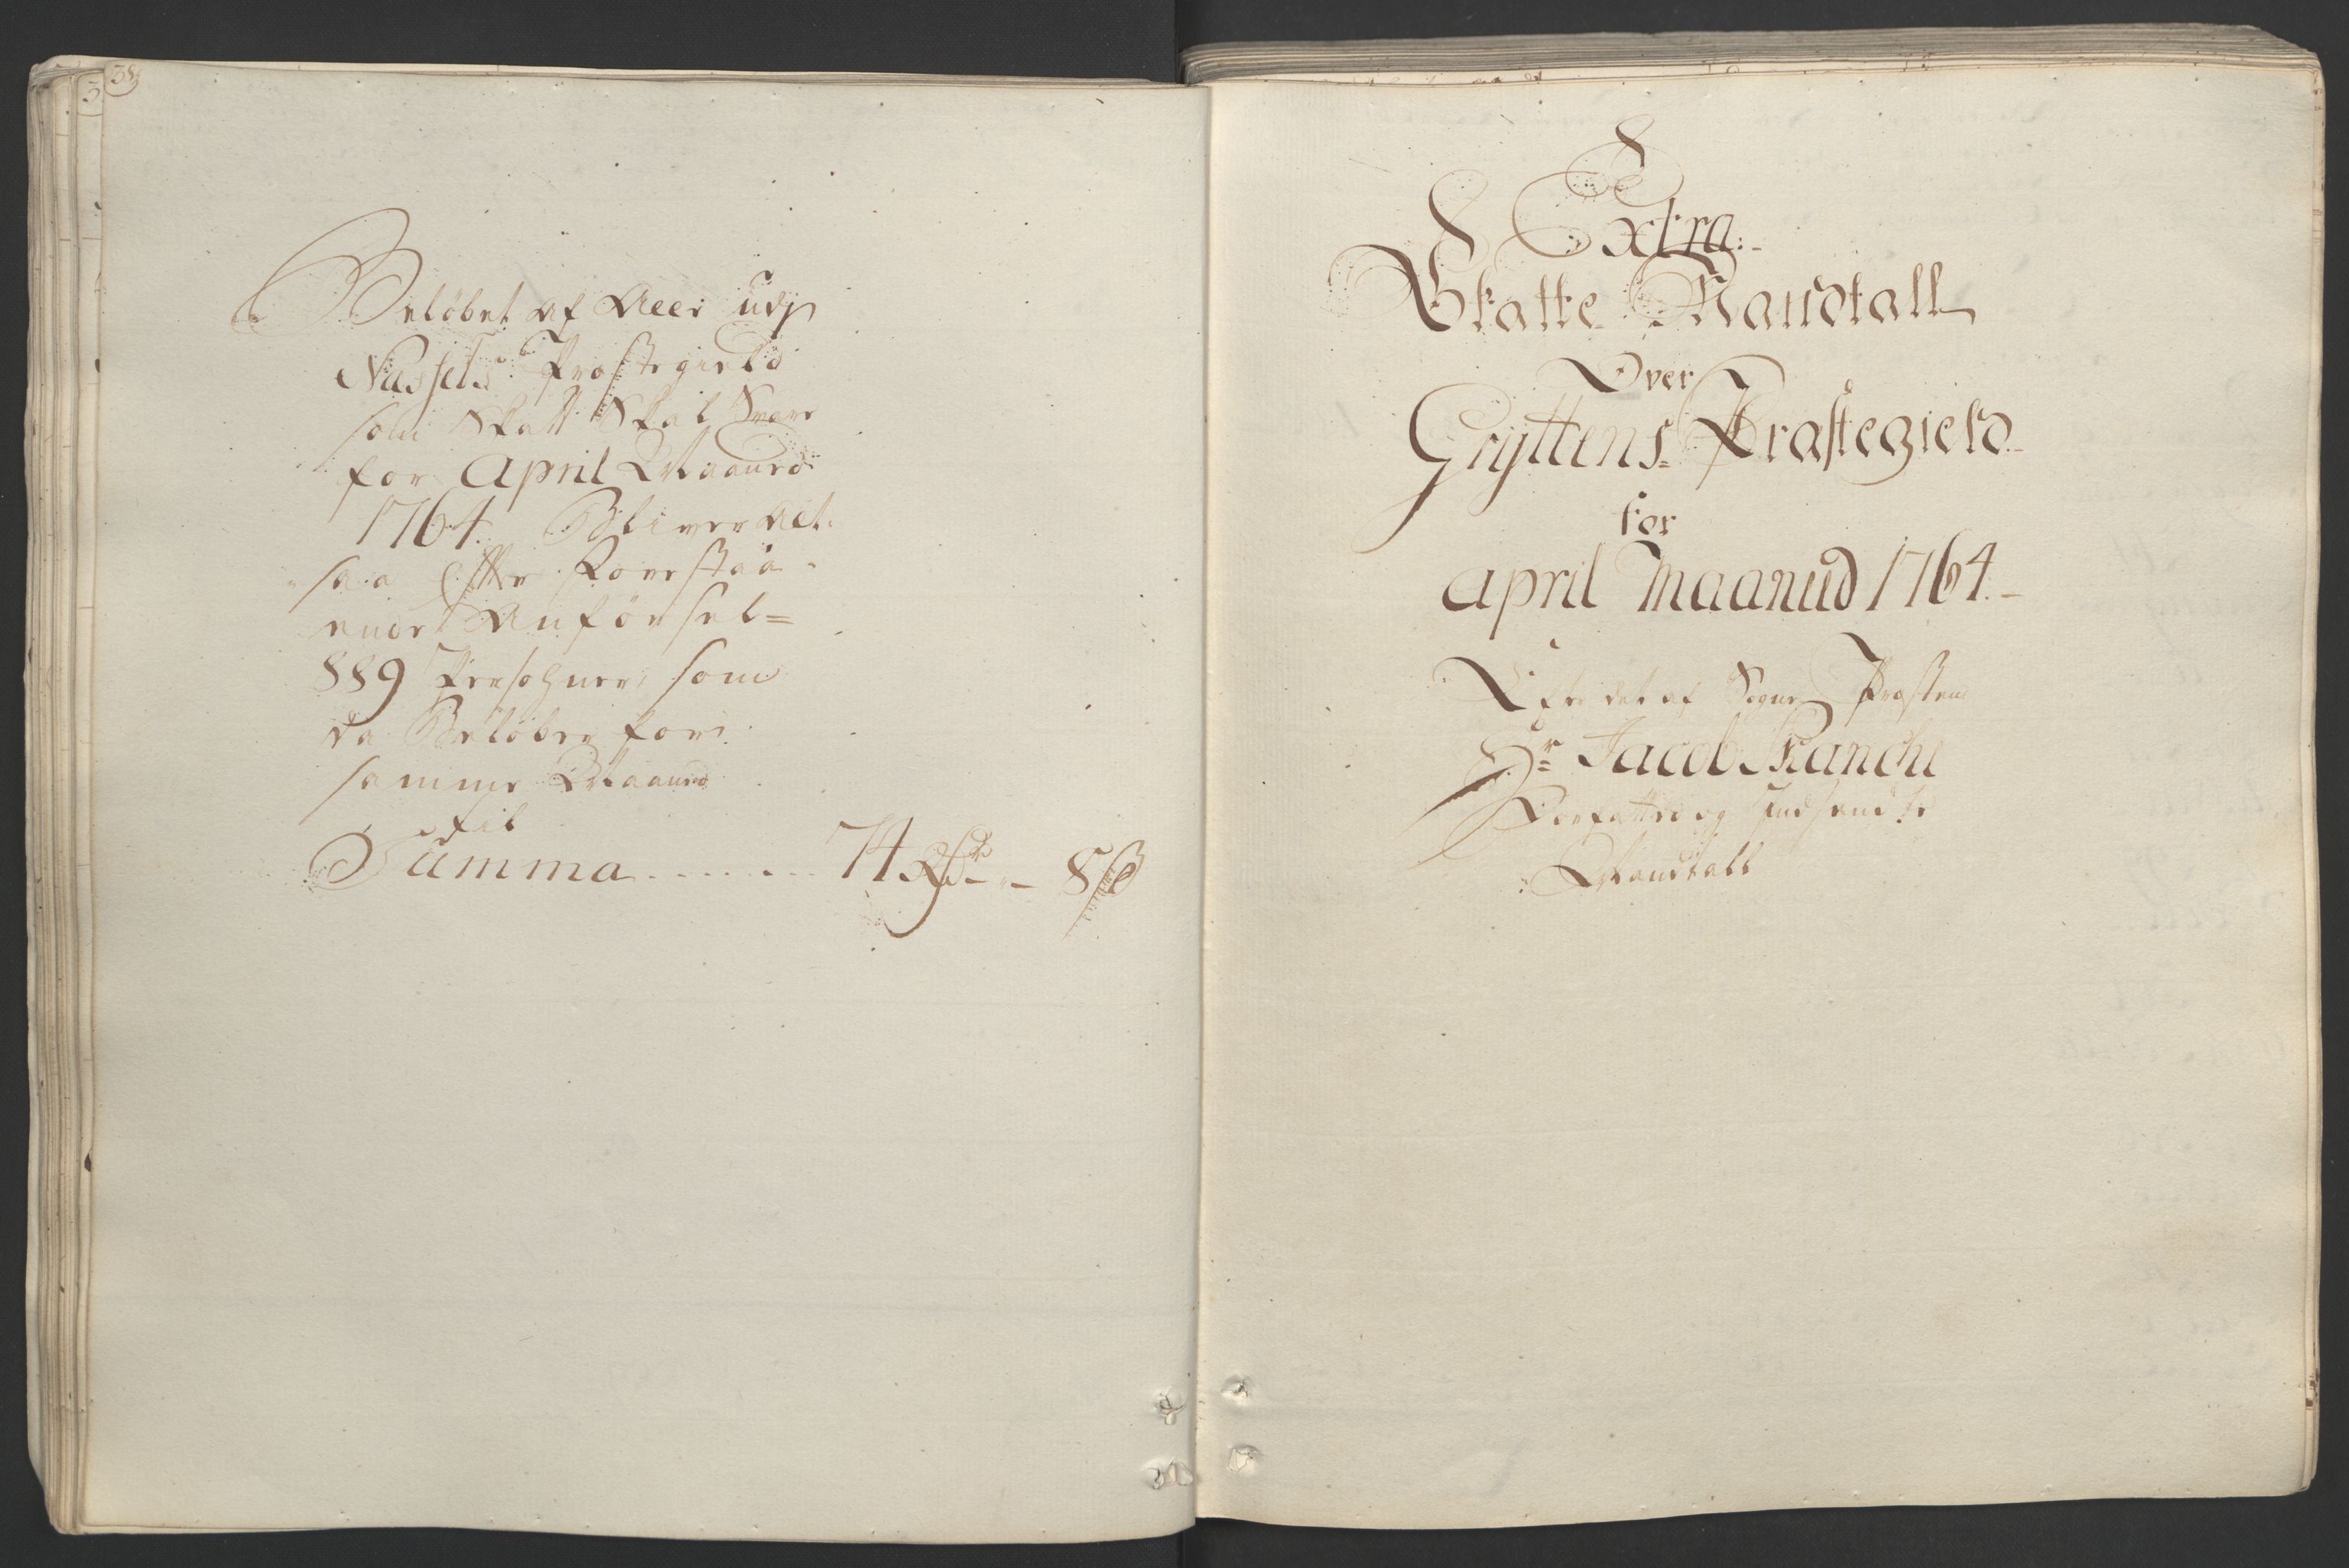 38
Beløbet af Alle udj
Nessets Præstegield
som Skatt Skal Svare
for April Maaned
1764. Bliver alt-
saa Efter Forestaa-
ende Anførsel=
889 Persohner, som
da Beløber for
samme Maaned
til
Summa ........ 74 Rdr - 8 s
Extra:-
Skatte Mandtall
Over
Gryttens Præstegield
for
April Maanud 1764.-
Efter det af Sogne Præsten
Hr Jacob
Forfattede og Indsendte
Mandtall